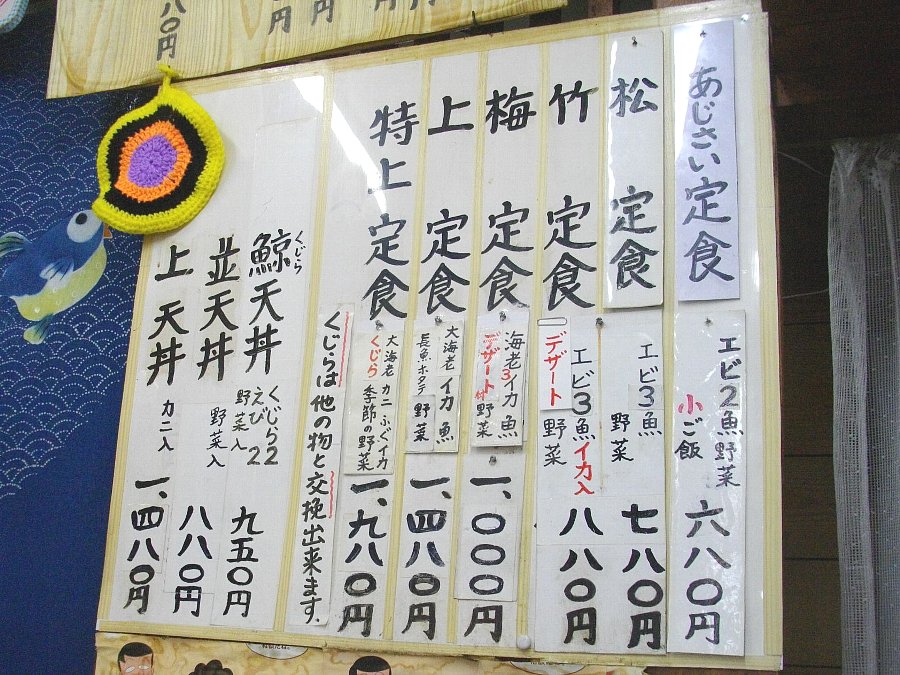 八〇円
円
円
円
円
あじさい定食
エビ2魚野菜
小ご飯
六八〇円
松 定食
エビ3魚
野菜
七八〇円
竹 定食
デザート
エビ3魚イカ入
野菜
八八〇円
梅 定食
海老3イカ魚
デザート付野菜
一、〇〇〇円
上 定食
大海老イカ魚
長魚ホタテ野菜
一、四八〇円
特上定食
大海老カニふぐイカ
くじら季節の野菜
一、九八〇円
くじらは他の物と交換出来ます。
くじら
鯨天丼
くじら22
えび22
野菜入
九五〇円
並天丼
野菜入
八八〇円
上天丼
カニ入
一、四八〇円